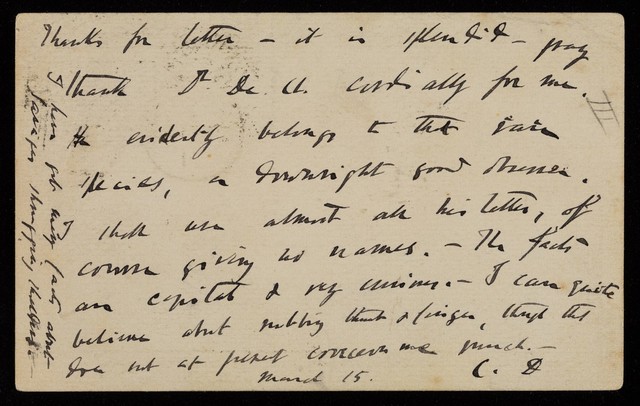 Thanks for letter — it is splendid — pray
thank Dr De A. cordially for me.
He evidently belongs to that rare
species, a downright good observer.
I shall use almost all his letter, of
course giving no names. — The facts
are capital & very curious. — I can quite
believe about rubbing thumb & finger, though this
does not at present concern me much. —
March 15. C. D
I have got many facts about
savages shrugging shoulders. —
III